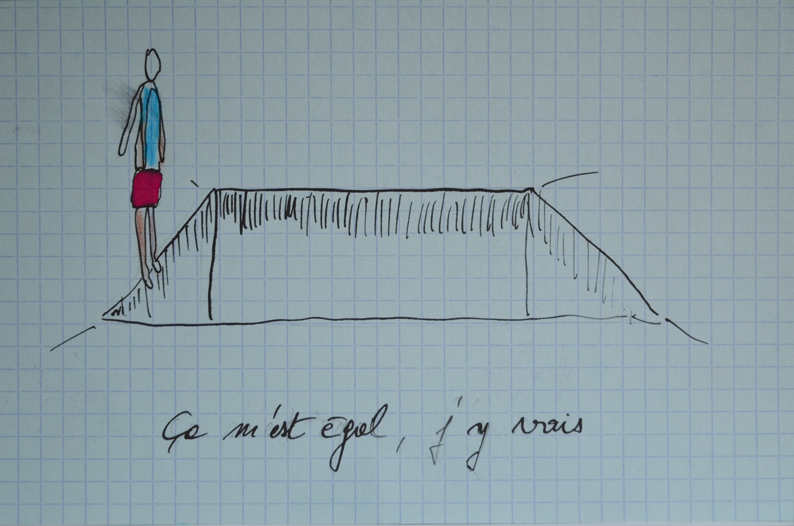 Ça m'est égal, j'y vais